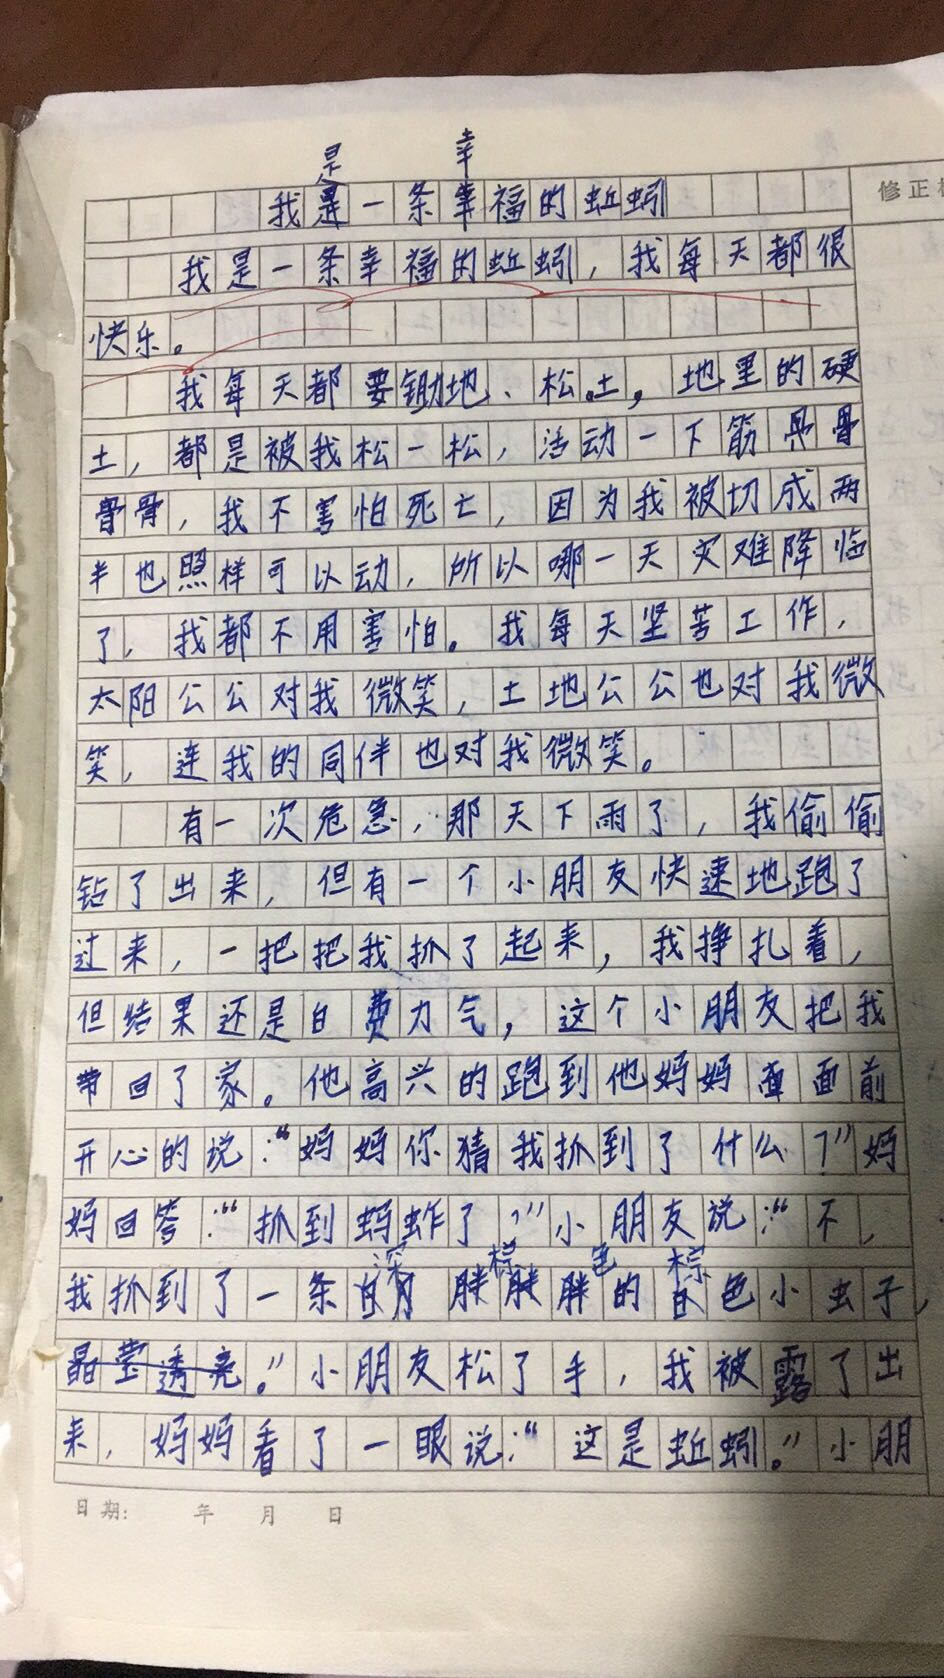 是 幸
我是一条幸福的蚯蚓
修正
我是一条幸福的蚯蚓，我每天都很
快乐。
我每天都要锄地、松土，地里的硬
土，都是被我松一松，活动一下筋骨骨
骨骨，我不害怕死亡，因为我被切成两
半也照样可以动，所以哪一天灾难降临
了，我都不用害怕。我每天坚苦工作，
太阳公公对我微笑，土地公公也对我微
笑，连我的同伴也对我微笑。
有一次危急，那天下雨了，我偷偷
钻了出来，但有一个小朋友快速地跑了
过来，一把把我抓了起来，我挣扎着，
但结果还是白费力气，这个小朋友把我
带回了家。他高兴的跑到他妈妈面面前
开心的说：“妈妈你猜我抓到了什么？”妈
妈回答：“抓到蚂蚱了？”小朋友说：“不，
深 棕 色 棕
我抓到了一条 胖胖胖的白色小虫子，
晶莹透亮。”小朋友松了手，我被露了出
来，妈妈看了一眼说：“这是蚯蚓。”小朋
日期： 年 月 日